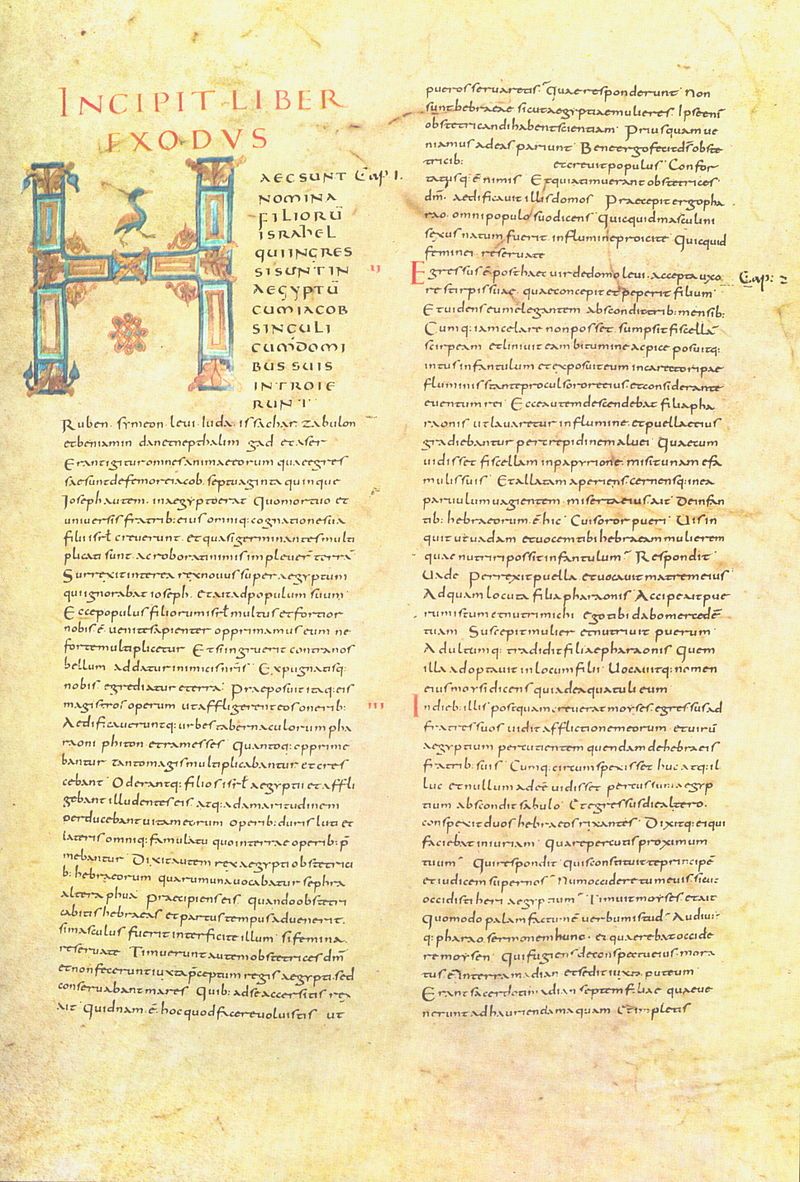 INCIPIT LIBER
EXODVS
HAEC SUNT Cap 1.
NOMINA
FILIORŪ
ISRAHEL
QUI INGRES
SI SUNT IN
AEGYPTŪ
CUM IACOB
SINGULI
CUM DOMI
BUS SUIS
INTROIE
RUNT
Ruben. symeon leui. Iuda. issachar. zabulon
et beniamin dan et nepthalim gad et aser
Erant igitur omnes animae eorum quae egres
sae sunt de femore iacob. septuaginta quinque
Ioseph autem. in aegypto erat Quo mortuo et
uniuersis fratrib: eius omniq: cognatione sua
filii isrl creuerunt et quasi germinantes multi
plicati sunt ac roborati nimis impleuer terrā
Surrexit interea rex nouus super aegyptum
qui ignorabat ioseph. et ait ad populum suum
Ecce populus filiorum isrl multus et fortior
nobis ē. uenite sapienter opprimamus eum ne
forte multiplicetur Et si ingruerit contra nos
bellum addatur inimicis nris Expugnatisq:
nobis egrediatur e terra Praeposuit itaq: eis
magistros operum ut affligerent eos onerib:
Aedificaueruntq: urbes tabernaculorum pha
raoni phiton et ramesses Quantoq: opprime
bantur tanto magis multiplicabantur et cres
cebant Oderantq: filios isrl aegyptii et affli
gebant illudentes eis Atq: ad amaritudinem
perducebant uitam eorum operib: duris luti et
lateris omniq: famulatu quo in terrae operib: p̄
mebantur Dixit autem rex aegypti obstetrici
b: hebraeorum quarum una uocabatur sephra
altera phua praecipiens eis quando obstetri
cabitis hebraeas et partus tempus aduenerit.
si masculus fuerit interficite illum si femina.
reseruate Timuerunt autem obstetrices dm̄
et non fecerunt iuxta p̄ceptum regis aegypti sed
conseruabant mares Quib: ad se accersitis rex
ait Quidnam ē. hoc quod facere uoluistis ut
pueros seruaretis Quae responderunt Non
sunt hebraeae sicut aegyptiae mulieres Ipsae ens
obstetricandi habent scientiam Priusquam ue
niamus ad eas pariunt Bene ergo fecit ds obste
tricib: et creuit populus Confor
tatusq: ē nimis Et quia timuerant obstetrices
dm̄. Aedificauit illis domos Praecepit ergo pha
rao. omni populo suo dicens Quicquid masculini
sexus natum fuerit in flumine proicite Quicquid
feminei reseruate
II
Egressus ē. post haec uir de domo leui. Accepta uxo Cap: 2
re stirpis suae. quae concepit et peperit filium
Et uidens eum elegantem abscondit trib: mensib:
Cumq: iam celare non posset sumpsit fiscellā
scirpeam et liniuit eam bitumine ac pice posuitq:
intus infantulum et exposuit eum in carecto ripae
fluminis stante procul sorore eius. et considerante
euentum rei Ecce autem descendebat filia pha
raonis ut lauaretur in flumine. et puellae eius
gradiebantur per crepidinem aluei Quae cum
uidisset fiscellam in papyrione misit unam e fa
mulis suis Et allatam aperiens cernensq: in ea
paruulum uagientem miserta eius ait De infan
tib: hebraeorum. ē hic Cui soror pueri Uis in
quit ut uadam et uocem tibi hebraeam mulierem
quae nutrire possit infantulum Respondit
Uade Perrexit puella et uocauit matrem eius
Ad quam locuta filia pharaonis Accipe ait pue
rum istum et nutri mihi ego tibi dabo mercedē
tuam Suscepit mulier et nutriuit puerum
Adultumq: tradidit filiae pharaonis Quem
illa adoptauit in locum filii Uocauitq: nomen
eius moysi dicens quia de aqua tuli eum
III
In dieb: illis postquam creuerat moyses egressus ad
fratres suos uidit afflictionem eorum et uirū
aegyptium percutientem quendam de hebraeis
fratrib: suis Cumq: circumspexisset huc atq: il
luc et nullum adee uidisset percussum aegyp
tium abscondit sabulo Et egressus die altero.
conspexit duos hebraeos rixantes Dixitq: ei qui
faciebat iniuriam Quare percutis proximum
tuum Qui respondit Quis constituit te principē
et iudicem super nos Num occidere tu me uis sicut
occidisti heri aegyptium Timuit moyses et ait
Quomodo palam factum ē uerbum istud Audiuit
q: pharao sermonem hunc. et quaerebat occide
re moysen Qui fugiens de conspectu eius mora
tus ē in terra madian et sedit iuxta puteum
Erant sacerdoti madian septem filiae quae ue
nerunt ad hauriendam aquam Et impletis